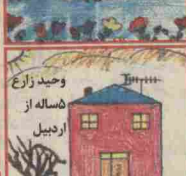 وحید زارع
۵ساله از
اردبیل